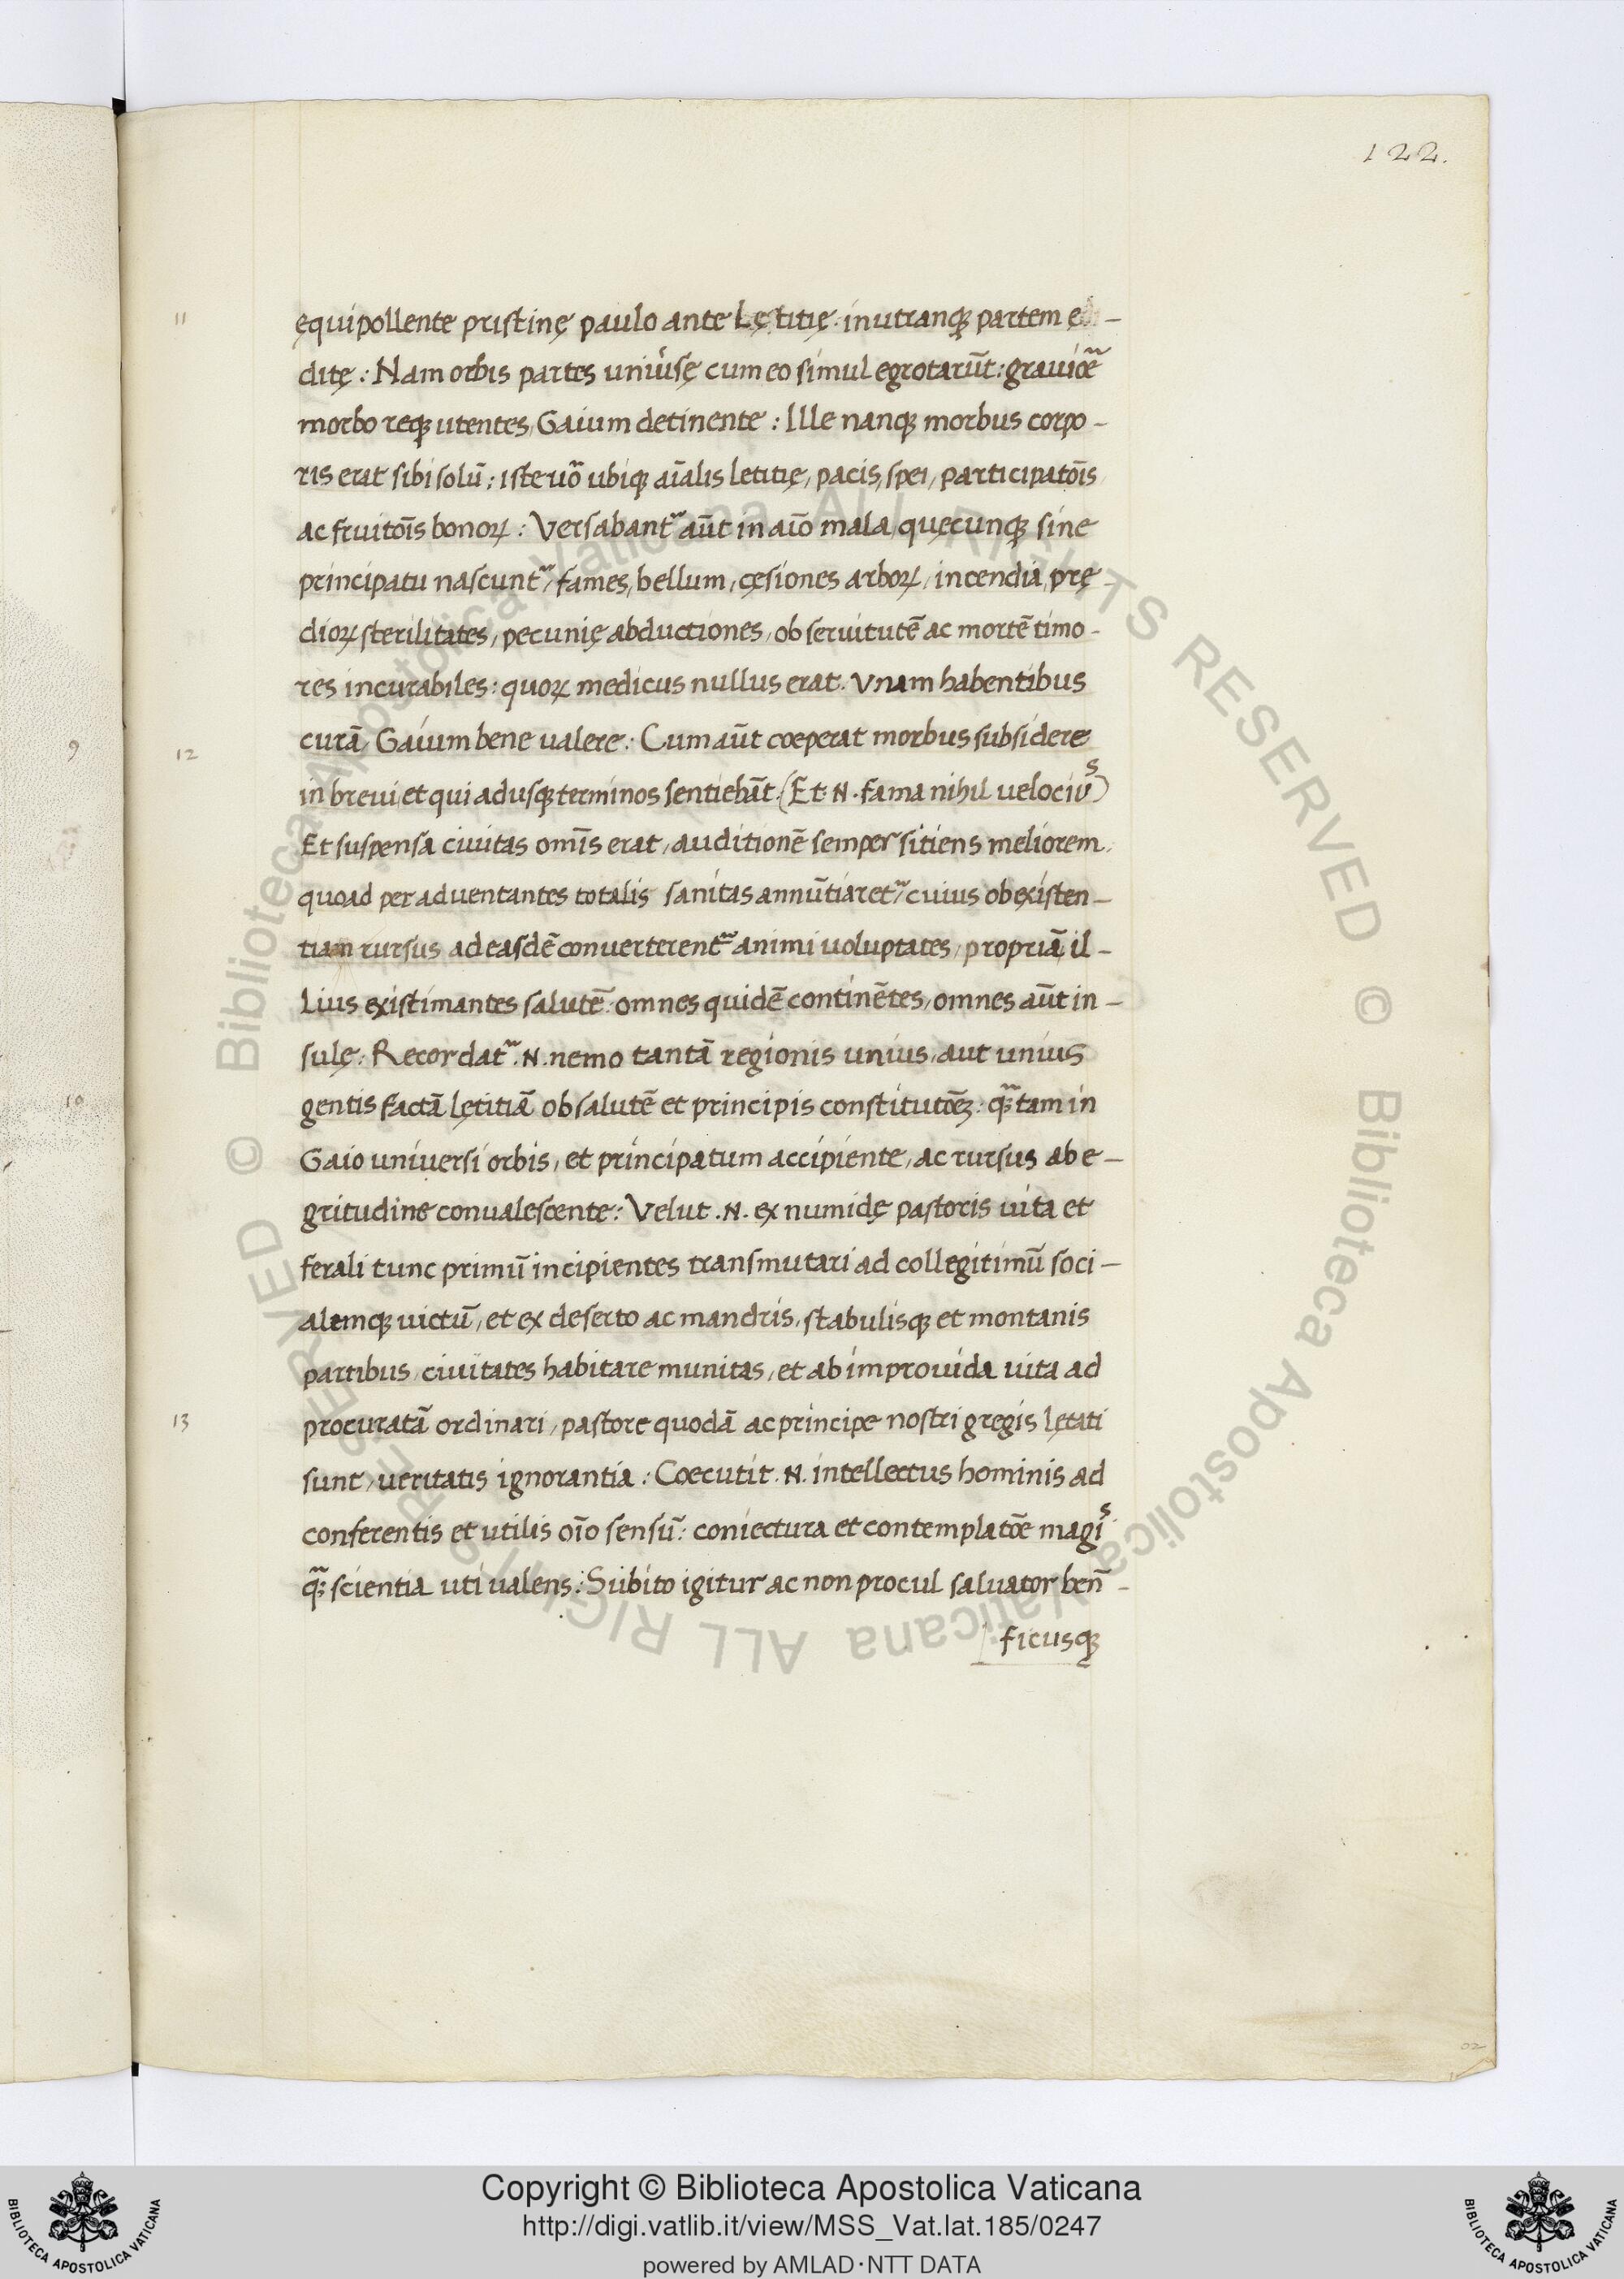 122.
11
ęquipollente pristinę paulo ante Lętitię: in utranqꝫ partem e
ditę: Nam orbis partes uniu̓sę cum eo simul egrotarūt: grauiōe
morbo reqꝫ utentes, Gaium detinente: Ille nanqꝫ morbus corpo-
ris erat sibi solū: iste uō ubiqꝫ aīalis letitię, pacis, spei, participatōīs
ac fruitōīs bonoꝝ: Versabantᷣ aūt in aīo mala, quęcunqꝫ sine
principatu nascuntᷣ, fames, bellum, cęsiones arboꝝ, incendia, prę
dioꝝ sterilitates, pecunię abductiones, ob seruitutē ac mortē timo-
res incurabiles: quoꝝ medicus nullus erat. Vnam habentibus
9
12
curā, Gaium bene ualere: Cum aūt coeperat morbus subsidere
in breui, et qui ad usqꝫ terminos sentiebāt. (Et .N. fama nihil uelociuˢ)
Et suspensa ciuitas omīs erat, auditionē semper sitiens meliorem,
quoad per aduentantes totalis sanitas annūtiaretᷣ, cuius ob existen-
tiam rursus ad easdē conuerterentᷣ animi uoluptates, propriā il-
Lius existimantes salutē: omnes quidē continētes, omnes aūt in-
sulę: Recordatᷣ .N. nemo tantā regionis unius, aut unius
10
gentis factā lętitiā ob salutē et principis constitutōēꝫ: qꝫ̃ tam in
Gaio uniuersi orbis, et principatum accipiente, ac rursus ab e-
gritudine conualescente: Velut .N. ex numidę pastoris uita et
ferali tunc primū incipientes transmutari ad collegitimū soci-
alemqꝫ uictū, et ex deserto ac mandris, stabulisqꝫ et montanis
partibus, ciuitates habitare munitas, et ab improuida uita ad
13
procuratā ordinari, pastore quodā ac principe nostri gregis lętati
sunt, ueritatis ignorantia: Coecutit .N. intellectus hominis ad
conferentis et utilis oīo sensū: coniectura et contemplatōe magiˢ
qꝫ̃ scientia uti ualens: Subito igitur ac non procul saluator ben̄-
ficusqꝫ
02
© Biblioteca Apostolica Vaticana ALL RIGHTS RESERVED © Biblioteca Apostolica Vaticana ALL RIGHTS RESERVED
BIBLIOTECA APOSTOLICA VATICANA
Copyright © Biblioteca Apostolica Vaticana
http://digi.vatlib.it/view/MSS_Vat.lat.185/0247
powered by AMLAD·NTT DATA
BIBLIOTECA APOSTOLICA VATICANA